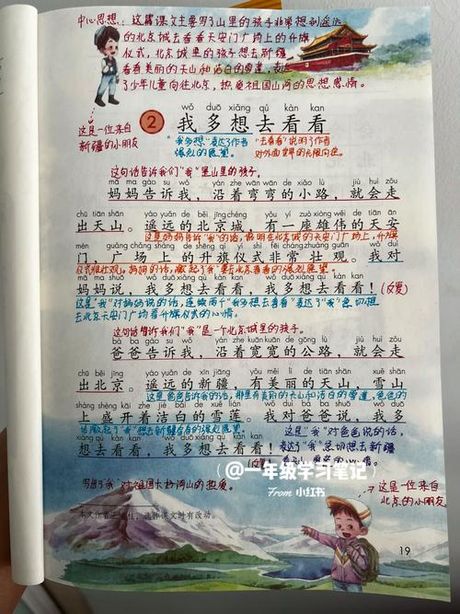 中心思想：这篇课文主要写了山里的孩子非常想到遥远
的北京城去看看天安门广场上的升旗
仪式，北京城里的孩子想去新疆
看看美丽的天山和洁白的雪莲，表达
了少年儿童向往北京，热爱祖国山河的思想感情。
这是一位来自
新疆的小朋友
wǒ duō xiǎng qù kàn kan
2 我多想去看看
"我多想"表达了作者
强烈的愿望。
"去看看"说明了作者
对外面世界的无限向往。
这句话告诉我们"我"是山里的孩子。
mā ma gào su wǒ yán zhe wān wān de xiǎo lù jiù huì zǒu
妈妈告诉我，沿着弯弯的小路，就会走
chū tiān shān yáo yuǎn de běi jīng chéng yǒu yí zuò xióng wěi de tiān ān
出天山。遥远的北京城，有一座雄伟的天安
mén guǎng chǎng shàng de shēng qí yí shì fēi cháng zhuàng guān wǒ duì
门，广场上的升旗仪式非常壮观。我对
mā ma shuō wǒ duō xiǎng qù kàn kan wǒ duō xiǎng qù kàn kan
妈妈说，我多想去看看，我多想去看看！
(反复)
这是"我"对妈妈说的话，连续两个"我多想去看看"表达了"我"急切想
去北京天安门广场看升旗仪式的心情。
这句话告诉我们"我"是一个北京城里的孩子。
bà ba gào su wǒ yán zhe kuān kuān de gōng lù jiù huì zǒu
爸爸告诉我，沿着宽宽的公路，就会走
chū běi jīng yáo yuǎn de xīn jiāng yǒu měi lì de tiān shān xuě shān
出北京。遥远的新疆，有美丽的天山，雪山
shàng shèng kāi zhe jié bái de xuě lián wǒ duì bà ba shuō wǒ duō
上盛开着洁白的雪莲。我对爸爸说，我多
xiǎng qù kàn kan wǒ duō xiǎng qù kàn kan
想去看看，我多想去看看！
这是"我"对爸爸说的话，
表达了"我"急切想去新疆
@一年级学习笔记
From 小红书
写出了"我"对祖国大好河山的热爱。
这是一位来自
北京的小朋友
19